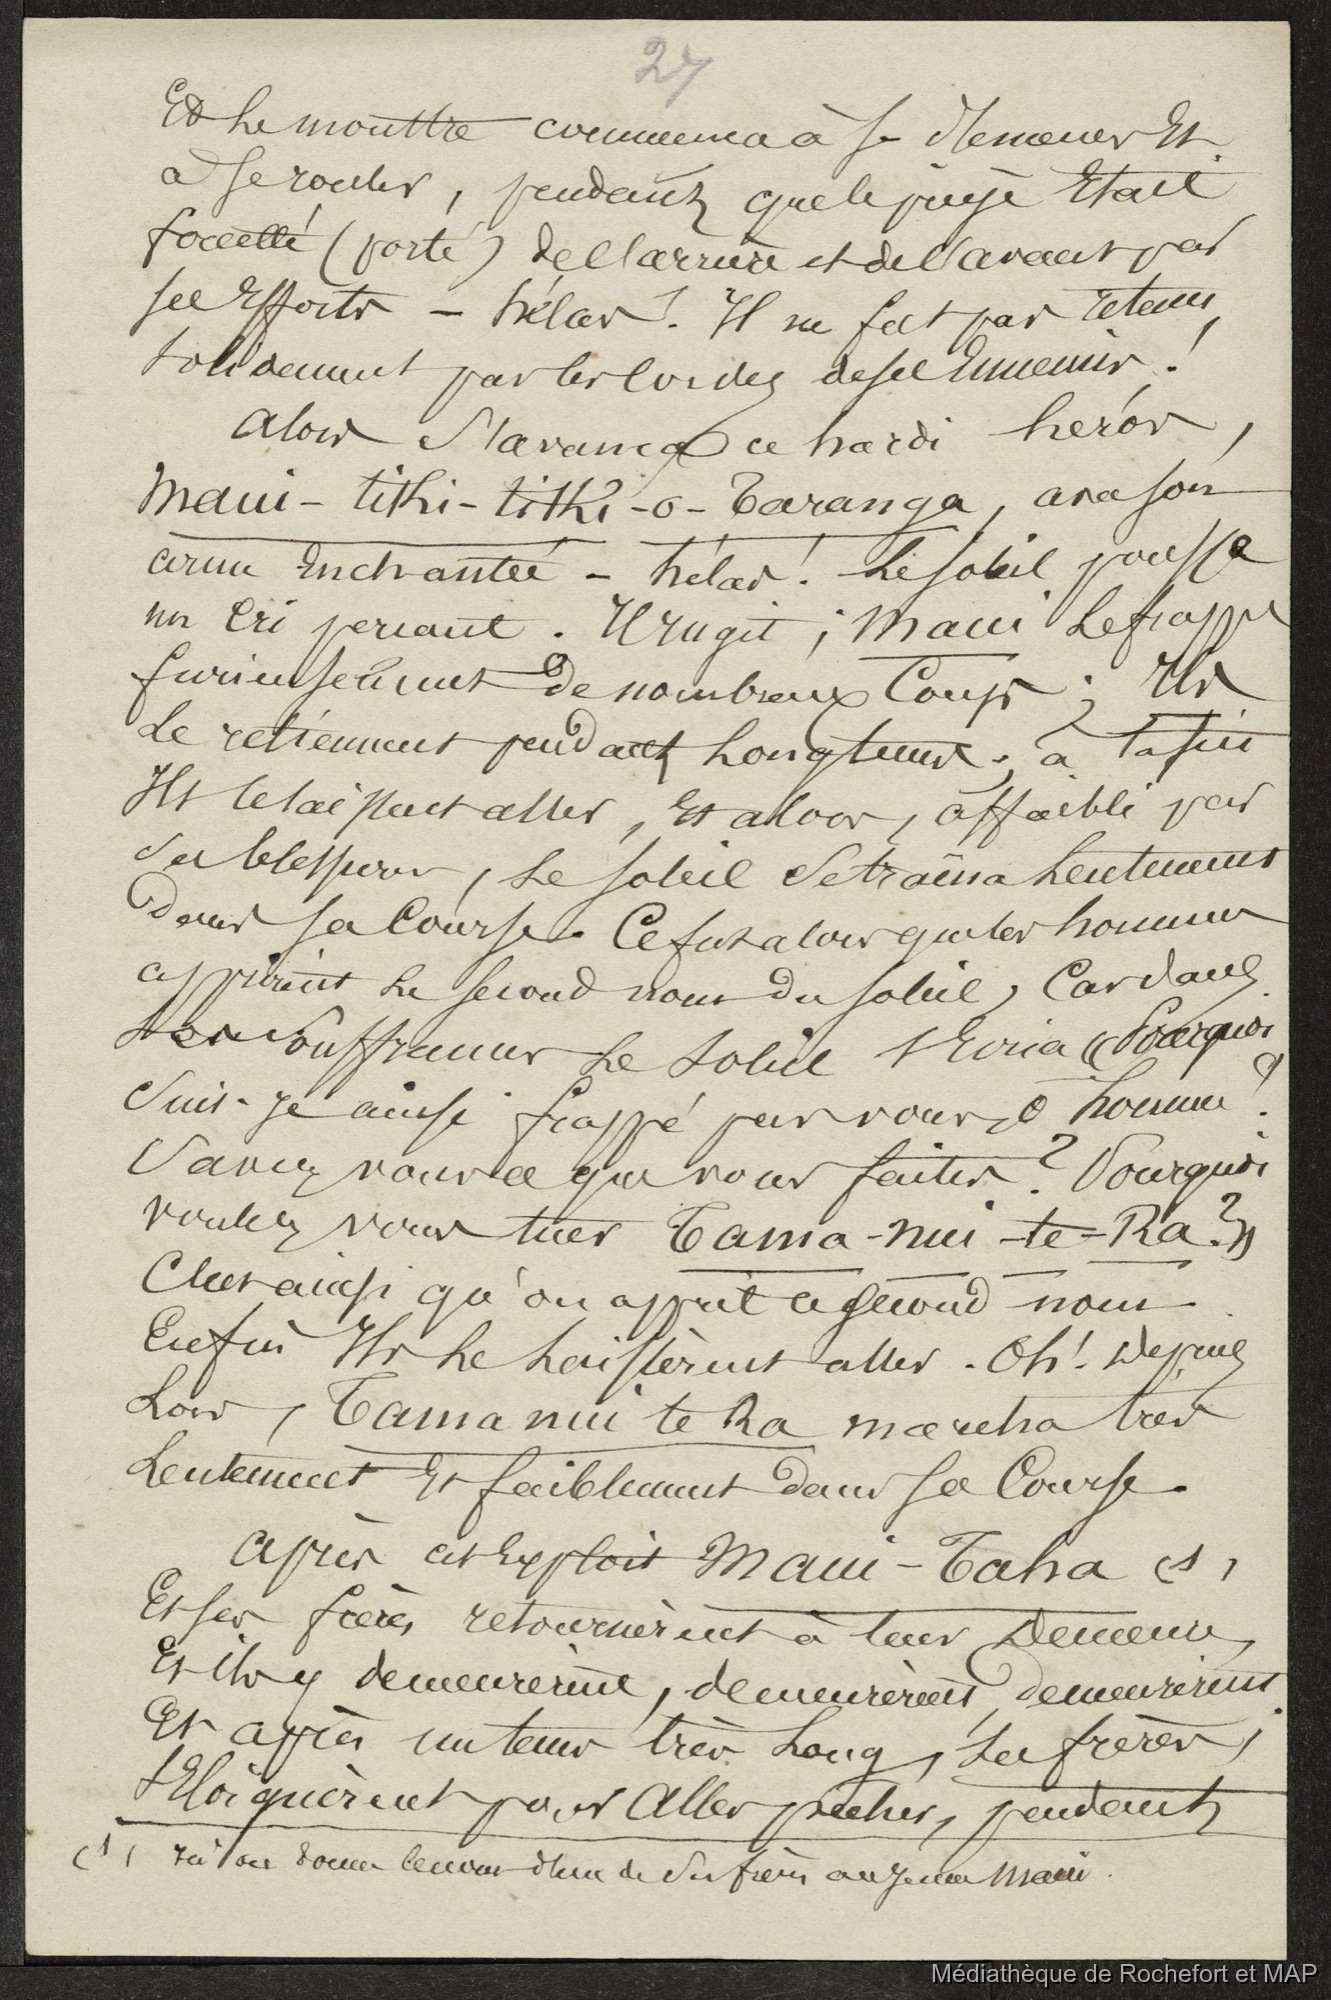 27
Et le monttre commença à se démener Et
à se rouler, pendant que le piège Etait
(porté) de l'arrière et de l'avant par
ses Efforts – hélas! Il ne fut pas retenu
solidement par les cordes de ses Ennemis!
alors s'avança ce hardi heros,
Maui-tithi-tithi-o-Taranga, avec son
arme Enchantée – hélas! Le soleil pousse
un Cri perçant. Il rugit; Maui Le frappe
furieusement De nombreux Coups; Ils
Le retiennent pendant Longtems; à la fin
Ils le laissent aller, Et alors, affaibli par
ses blessures, Le Soleil Se traîna Lentement
Dans sa Course. Ce fut alors que les hommes
apprirent Le second nom Du soleil, Car dans
ses Souffrances Le Soleil s'Ecria « Pourquoi
Suis-Je ainsi frappé par vous, O homme?
Savez vous ce que vous faites? Pourquoi
voulez vous tuer Tama-nui-te-Ra? »
C'est ainsi qu'on apprit ce second nom.
Enfin Ils Le Laissèrent aller. Oh! Depuis
Lors, Tama nui te Ra marcha très
Lentement Et faiblement Dans sa Course.
après cet Exploit Maui-Taha (1)
Et ses frères retournèrent à leur Demeure,
Et ils y demeurèrent, demeurèrent, demeurèrent
Et après un tems très Long, Les frères,
s'Eloignèrent pour Aller pêcher, pendant
(1) Ici on donne le nom d'un de ses frères au jeune Maui.
Médiathèque de Rochefort et MAP